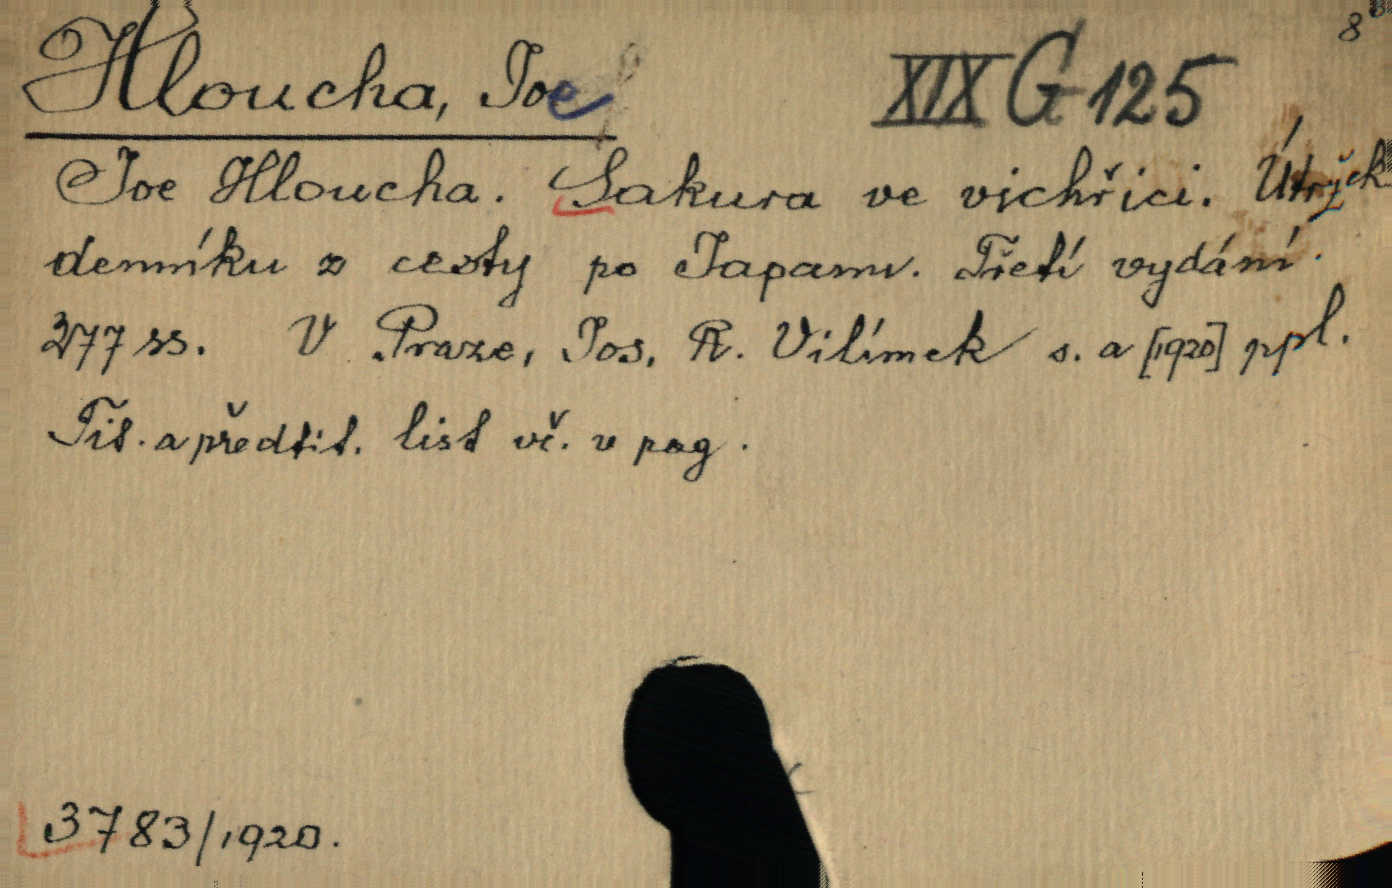 8°
Hloucha, Joe
XIX G 125
Joe Hloucha. Sakura ve vichřici. Útržek
denníku z cesty po Japanu. Třetí vydání.
377 ss. V Praze, Jos. R. Vilímek s. a [1920] ppl.
Tit. a předtit. list vč. v pag.
3783/1920.